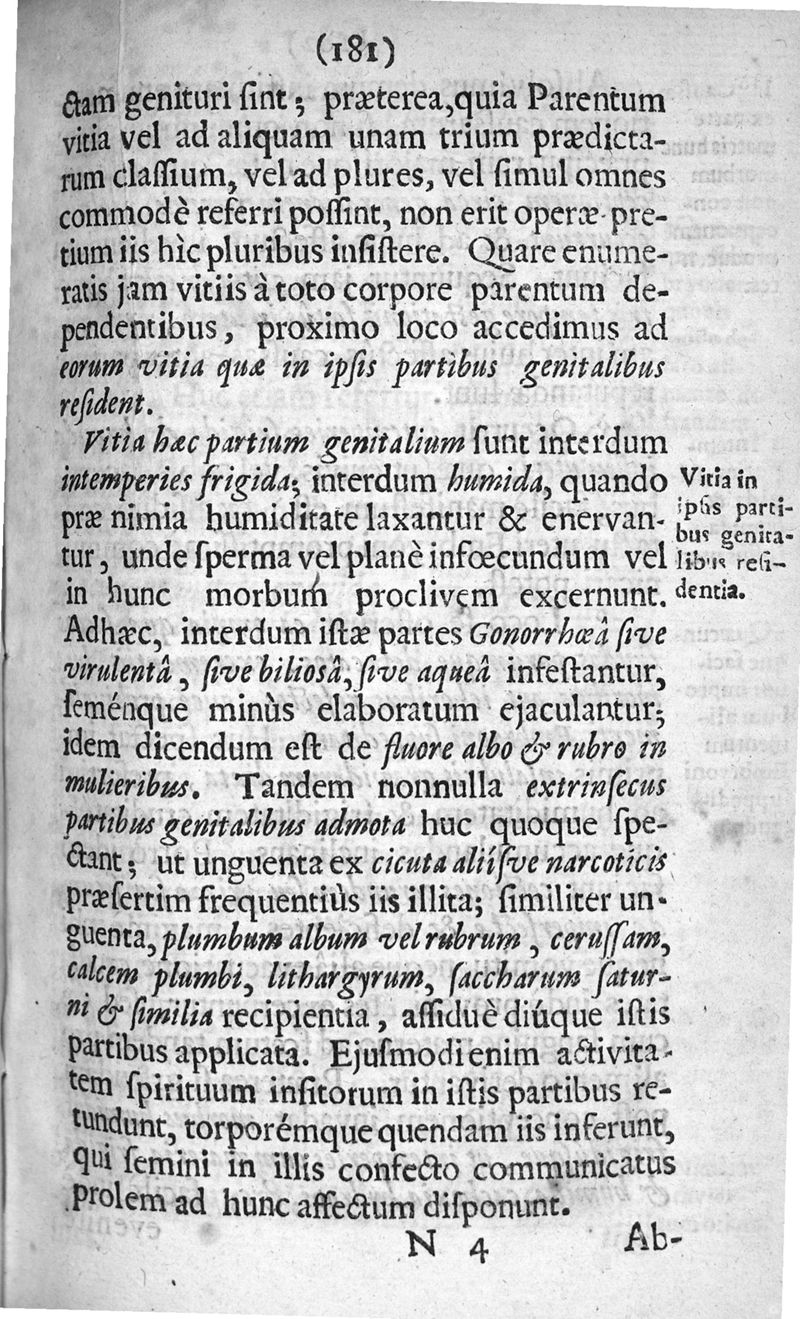 (181)
ctam genituri ſint; præterea, quia Parentum
vitia vel ad aliquam unam trium prædicta-
rum claſſium, vel ad plures, vel ſimul omnes
commodè referri poſſint, non erit operæ pre-
tium iis hìc pluribus inſiſtere. Quare enume-
ratis jam vitiis à toto corpore parentum de-
pendentibus, proximo loco accedimus ad
eorum vitia quæ in ipſis partibus genitalibus
reſident.
Vitia hæc partium genitalium ſunt interdum
intemperies frigida; interdum humida, quando
præ nimia humiditate laxantur & enervan-
tur, unde ſperma vel planè infœcundum vel
in hunc morbum proclivem excernunt.
Adhæc, interdum iſtæ partes Gonorrhœâ ſive
virulentâ, ſive bilioſâ, ſive aqueâ infeſtantur,
ſeménque minùs elaboratum ejaculantur;
idem dicendum eſt de fluore albo & rubro in
mulieribus. Tandem nonnulla extrinſecus
partibus genitalibus admota huc quoque ſpe-
ctant; ut unguenta ex cicuta aliíſve narcoticis
præſertim frequentiùs iis illita; ſimiliter un-
guenta, plumbum album vel rubrum, ceruſſam,
calcem plumbi, lithargyrum, ſaccharum ſatur-
ni & ſimilia recipientia, aſſiduè diúque iſtis
partibus applicata. Ejuſmodi enim activita-
tem ſpirituum inſitorum in iſtis partibus re-
tundunt, torporémque quendam iis inferunt,
qui ſemini in illis confecto communicatus
prolem ad hunc affectum diſponunt.
N 4
Ab-
Vitia in
ipſis parti-
bus genita-
libus reſi-
dentia.